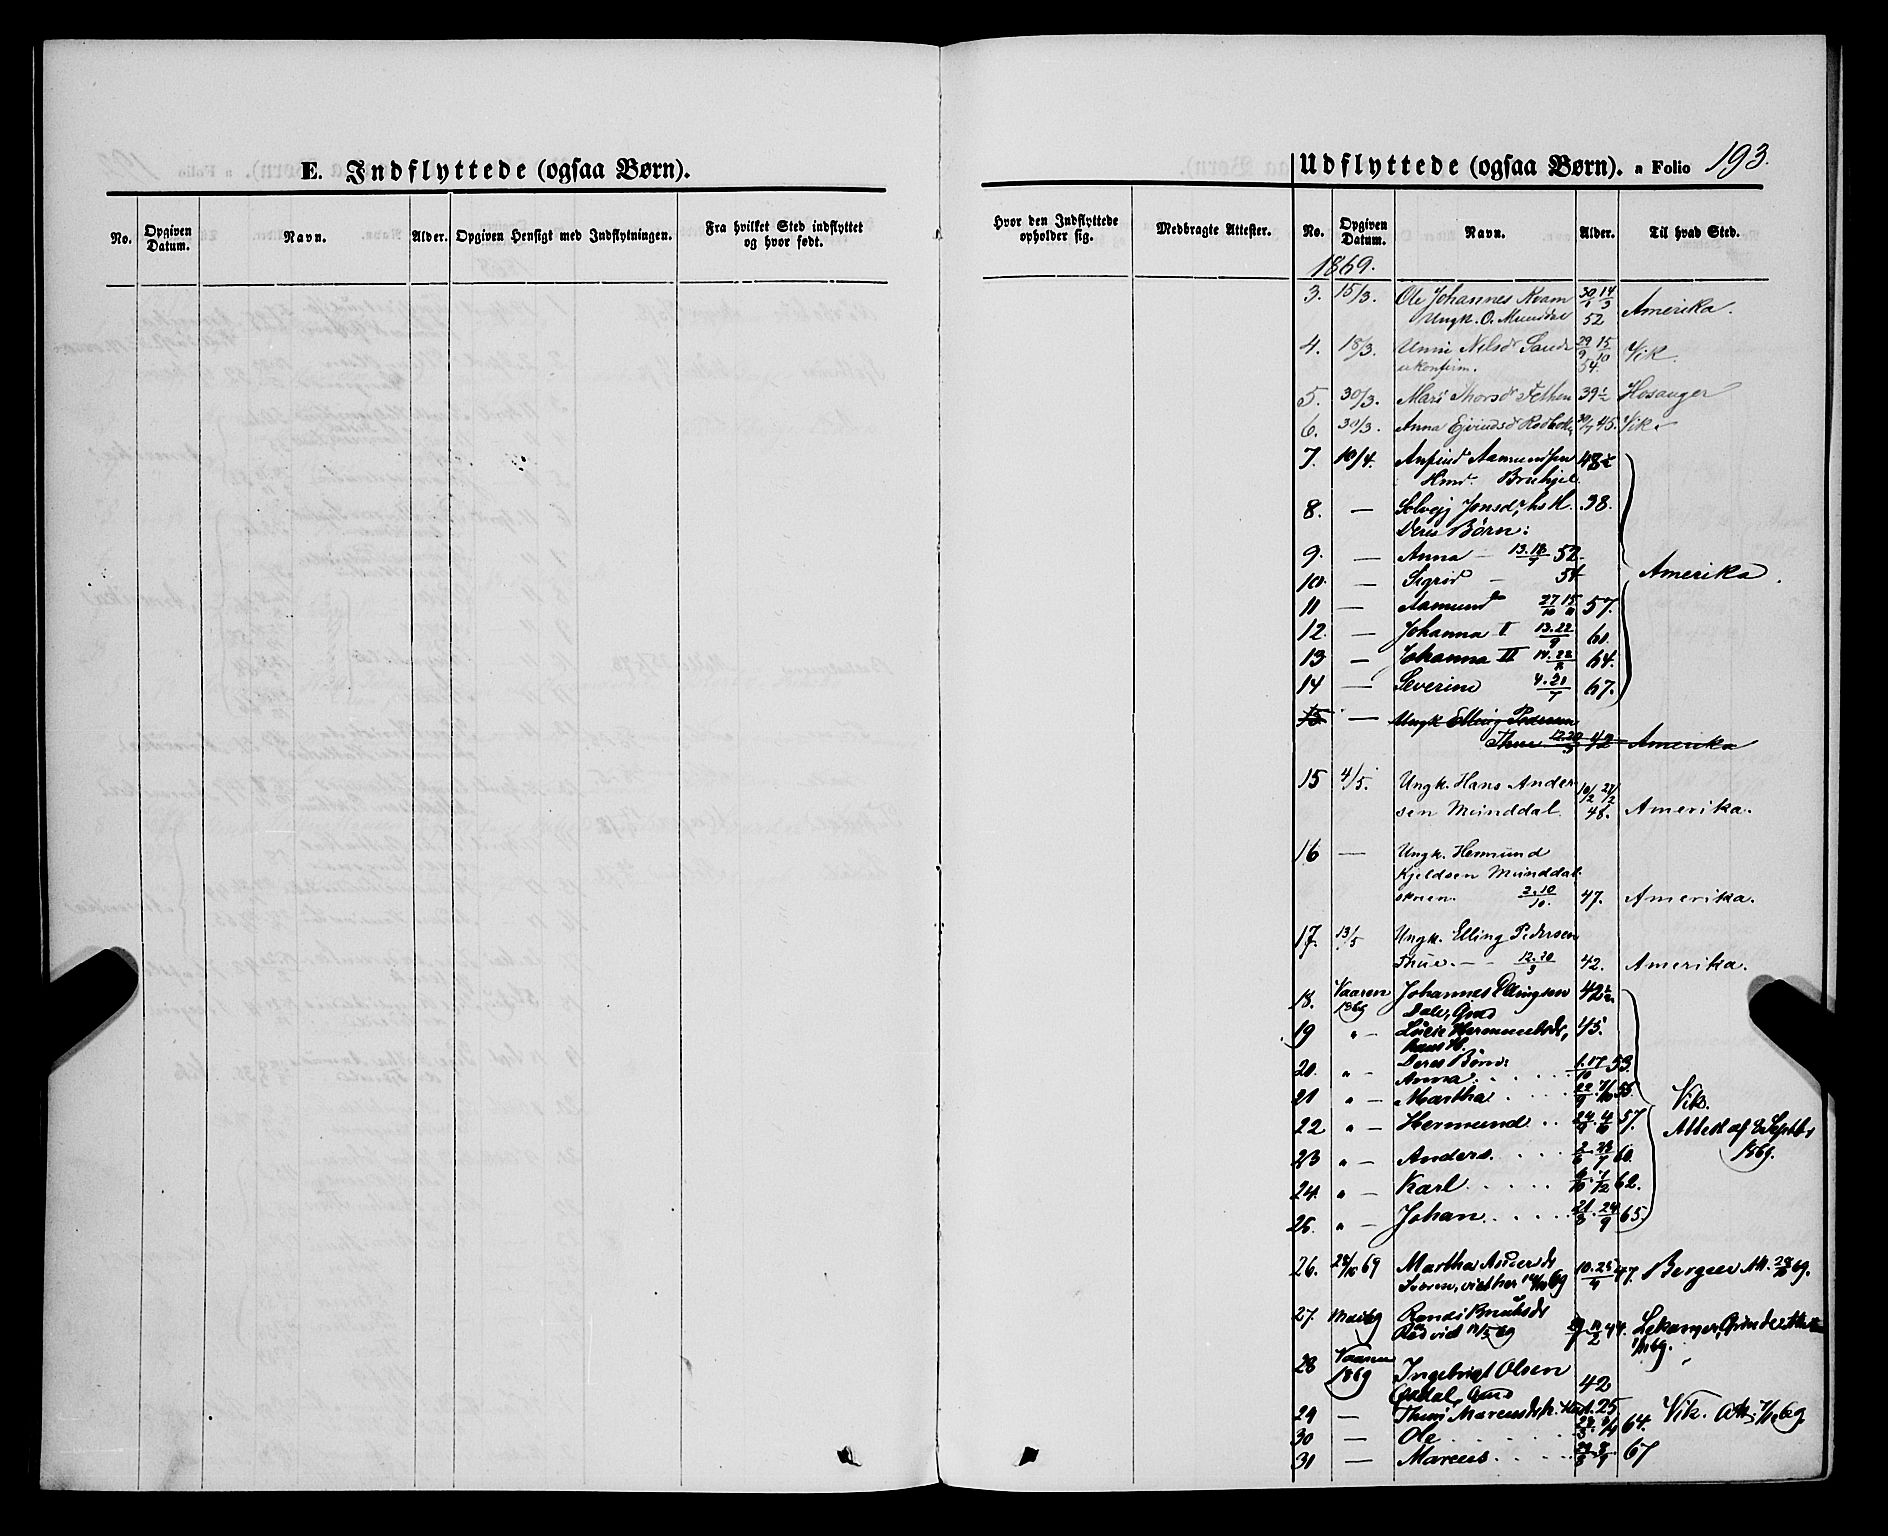 E. Indflyttede (ogsaa Børn).
No. Opgiven Datum. Navn. Alder. Opgiven Hensigt med Indflytningen. Fra hvilket Sted indflyttet og hvor født.
Hvor den Indflyttede opholder sig. Medbragte Attester.
Udflyttede (ogsaa Børn). a Folio 193.
No. Opgiven Datum. Navn. Alder. Til hvad Sted.
1869.
3. 15/3. Ole Johannes Kvam 30/1 14/3
Ungk. O. Munddal 52 Amerika.
4. 18/3. Unni Nelsd. Sande 29/9 15/10 Vik
ukonfirm. 54.
5. 30/3. Mari Thorsd Fethen 39½ Hosanger
6. 30/3. Anna Ejvindsd 45. Vik.
7. 10/4. Anfind Aamundsen 48½
Hmd.
8. — Solvej Jonsd, hs H. 38.
Deres Børn:
9. — Anna — 13.18/7 52.
10. — Sigrid — 54
11 — Aamund 27/10 15/11 57.
12. — Johanna I 13.22/9 60.
13 — Johanna II 14.22/2 64.
14 — Severine 4.21/7 67.
Amerika.
15. — Ungk Elling Pedersen
Thue 12.20/3 42 Amerika
15 4/5. Ungk. Hans Ander-
sen Munddal. 10/2 27/2 48. Amerika.
16 — Ungk. Hermund
Kjeldsen Munddal-
skreen. 2.10/10. 47. Amerika.
17. 13/5 Ungk. Elling Pedersen
Thue. — - 12.20/3 42. Amerika.
18. Vaaren 1869 Johannes Ellingsen 42½
Dale, Gmd
19 " — Lucie Hermundsd, 45.
hans H.
20. " — Deres Børn:
Anna. 1.17/10 53.
21 " — Martha 22/9 7/10 55.
22 " — Hermund 24/9 4/10 57.
23 " — Anders. 2/6 23/7 60.
24. " — Karl 62.
25. " — Johan 21/8 24/9 65.
Vik.
Attest af 8 Septbr
1869.
26. 28/10 69 Martha Andersd 10.25/4 47. Bergen At. 28/10 69.
viet her 14/10 69
27. Mai 69 Randi Knutsd
viet 14/5 69 44. Lekanger,
28 Vaaren 1869 Ingebrigt Olsen
Gmd 42
29 — Thuri Marcusd. 25 Vik.
30 — Ole 64.
31 — Marcus 67